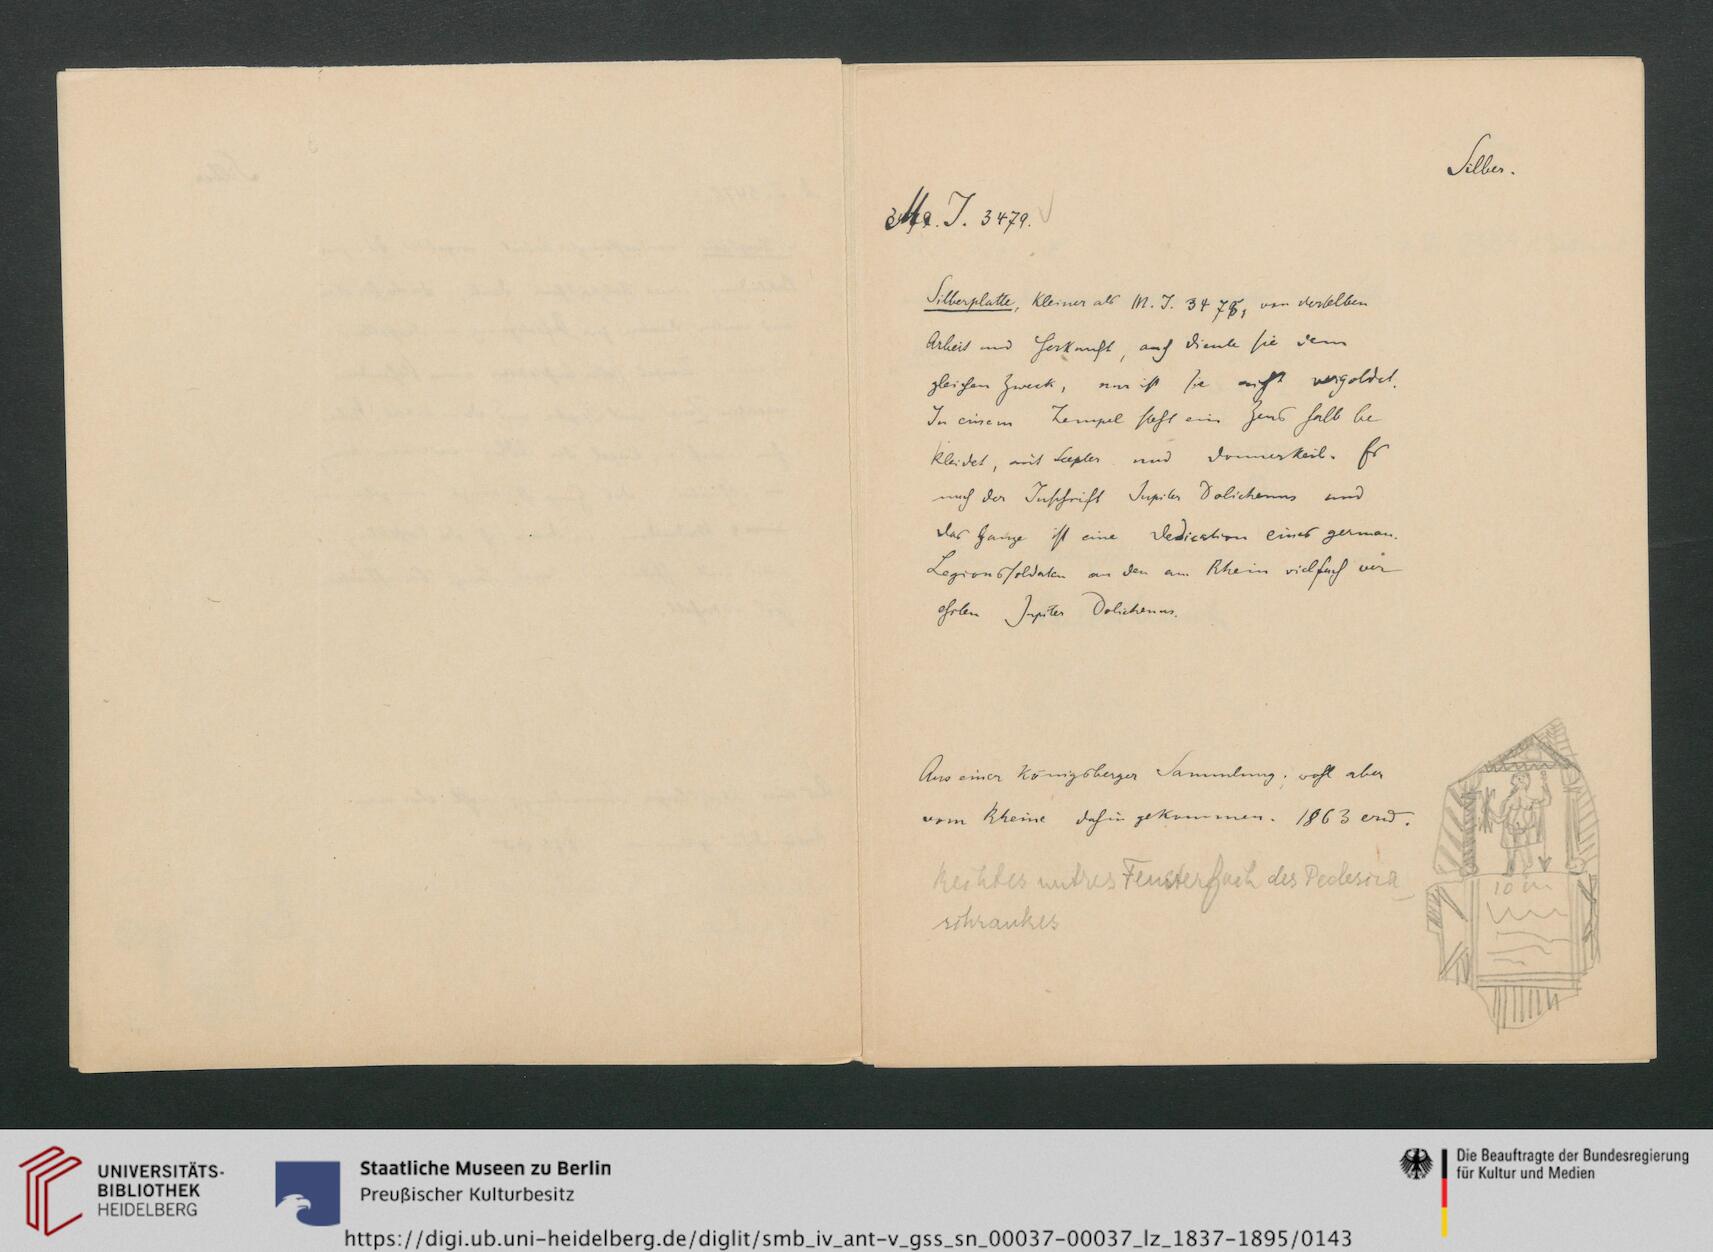 Silber.
M. J. 3479.
Silberplatte, kleiner als M. J. 3478, von derselben
Arbeit und Herkunft, auch diente sie dem
gleichen Zweck, nur ist sie nicht vergoldet.
In einem Tempel steht ein Zeus halb be
kleidet, mit Scepter und Donnerkeil. Es
nach der Inschrift Jupiter Dolichenus und
das Ganze ist eine Dedication eines german.
Legionssoldaten an den am Rhein vielfach ver
ehrten Jupiter Dolichenus.
Aus einer Königsberger Sammlung, wohl aber
vom Rheine dahin gekommen. 1863 erw.
Rechtes untres Fensterfach des
schrankes
10 cm
UNIVERSITÄTS-
BIBLIOTHEK
HEIDELBERG
Staatliche Museen zu Berlin
Preußischer Kulturbesitz
Die Beauftragte der Bundesregierung
für Kultur und Medien
https://digi.ub.uni-heidelberg.de/diglit/smb_iv_ant-v_gss_sn_00037-00037_lz_1837-1895/0143